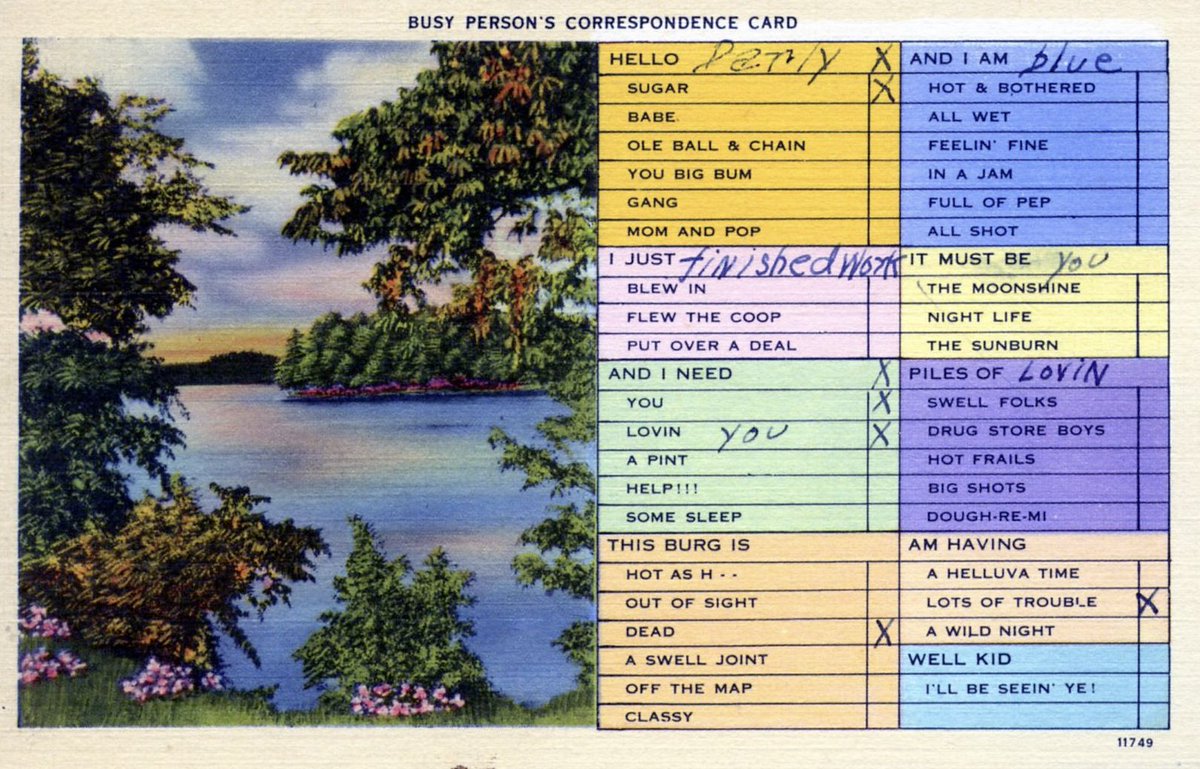 BUSY PERSON'S CORRESPONDENCE CARD
HELLO X
SUGAR X
BABE
OLE BALL & CHAIN
YOU BIG BUM
GANG
MOM AND POP
I JUST finished work
BLEW IN
FLEW THE COOP
PUT OVER A DEAL
AND I NEED X
YOU X
LOVIN you X
A PINT
HELP!!!
SOME SLEEP
THIS BURG IS
HOT AS H--
OUT OF SIGHT
DEAD X
A SWELL JOINT
OFF THE MAP
CLASSY
AND I AM blue
HOT & BOTHERED
ALL WET
FEELIN' FINE
IN A JAM
FULL OF PEP
ALL SHOT
IT MUST BE you
THE MOONSHINE
NIGHT LIFE
THE SUNBURN
PILES OF LOVIN
SWELL FOLKS
DRUG STORE BOYS
HOT FRAILS
BIG SHOTS
DOUGH-RE-MI
AM HAVING
A HELLUVA TIME
LOTS OF TROUBLE X
A WILD NIGHT
WELL KID
I'LL BE SEEIN' YE!
11749